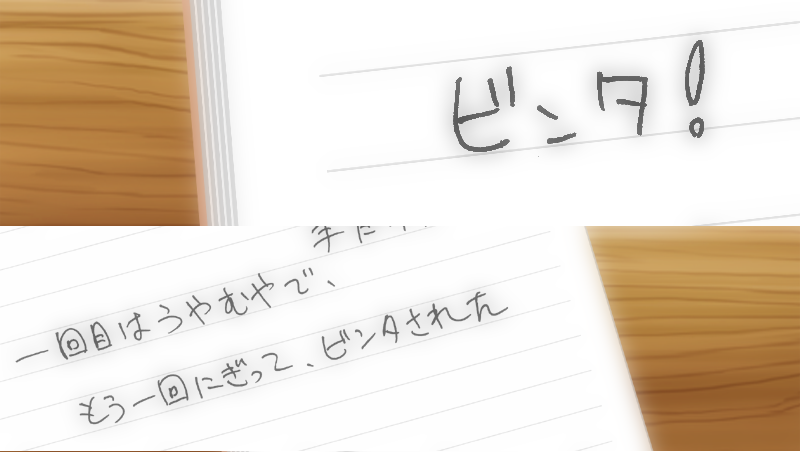 ビンタ!
一回目はうやむやで、
もう一回にぎって、ビンタされた